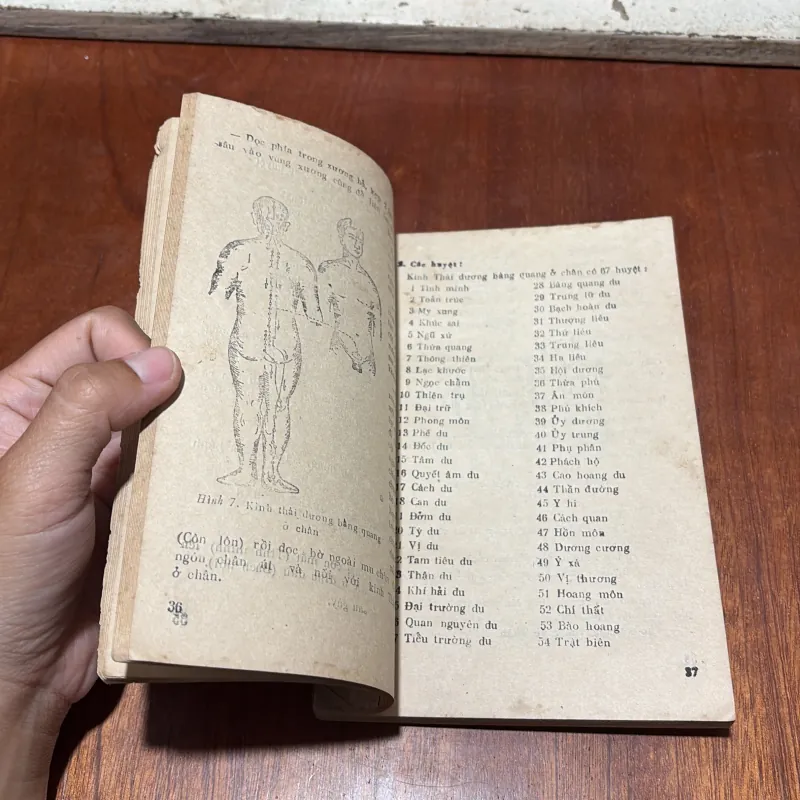 — Dọc phía trong xương bả, kẹp
sâu vào vùng xương cùng để
Hình 7. Kinh thái dương bàng quang
ở chân
(Côn lôn) rồi dọc bờ ngoài mu
ngón chân út và nối với kinh
ở chân.
36
2. Các huyệt:
Kinh Thái dương bàng quang ở chân có 67 huyệt:
1 Tình minh
2 Toản trúc
3 My xung
4 Khúc sai
5 Ngũ xứ
6 Thừa quang
7 Thông thiên
8 Lạc khước
9 Ngọc chẩm
10 Thiên trụ
11 Đại trữ
12 Phong môn
13 Phế du
14 Đốc du
15 Tâm du
16 Quyết âm du
17 Cách du
8 Can du
Đởm du
Tỳ du
1 Vị du
2 Tam tiêu du
3 Thận du
4 Khí hải du
5 Đại trường du
6 Quan nguyên du
7 Tiểu trường du
28 Bàng quang du
29 Trung lữ du
30 Bạch hoàn du
31 Thượng liêu
32 Thứ liêu
33 Trung liêu
34 Hạ liêu
35 Hội dương
36 Thừa phù
37 Ân môn
38 Phù khích
39 Ủy dương
40 Ủy trung
41 Phụ phân
42 Phách hộ
43 Cao hoang du
44 Thần đường
45 Y hi
46 Cách quan
47 Hồn môn
48 Dương cương
49 Ý xá
50 Vị thương
51 Hoang môn
52 Chí thất
53 Bào hoang
54 Trật biên
37